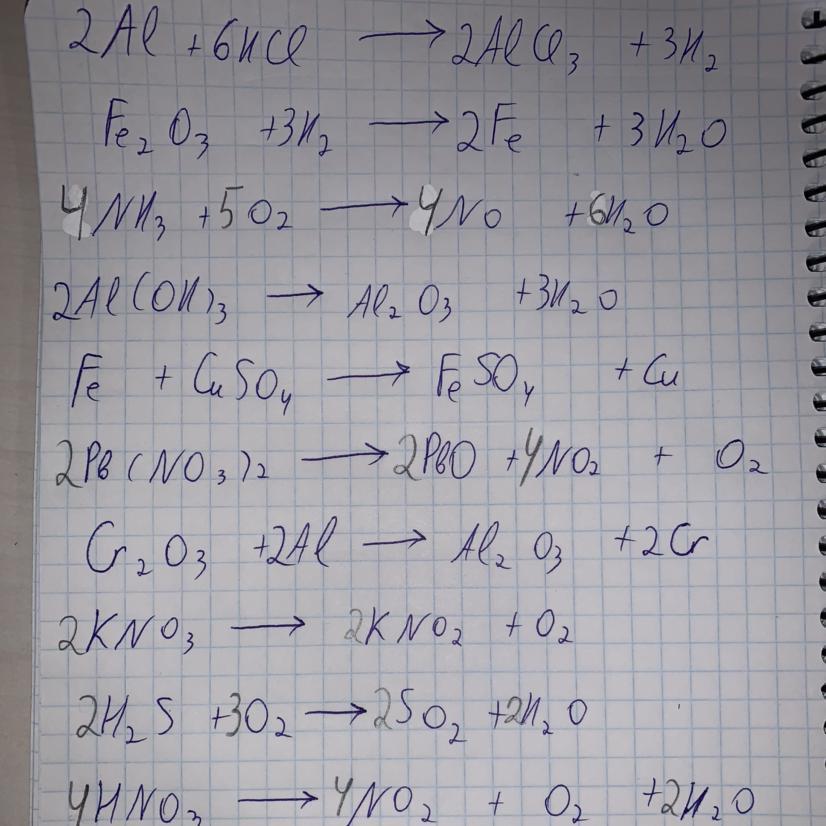 2Al + 6HCl → 2AlCl₃ + 3H₂
Fe₂O₃ + 3H₂ → 2Fe + 3H₂O
4NH₃ + 5O₂ → 4NO + 6H₂O
2Al(OH)₃ → Al₂O₃ + 3H₂O
Fe + CuSO₄ → FeSO₄ + Cu
2Pb(NO₃)₂ → 2PbO + 4NO₂ + O₂
Cr₂O₃ + 2Al → Al₂O₃ + 2Cr
2KNO₃ → 2KNO₂ + O₂
2H₂S + 3O₂ → 2SO₂ + 2H₂O
4HNO₃ → 4NO₂ + O₂ + 2H₂O